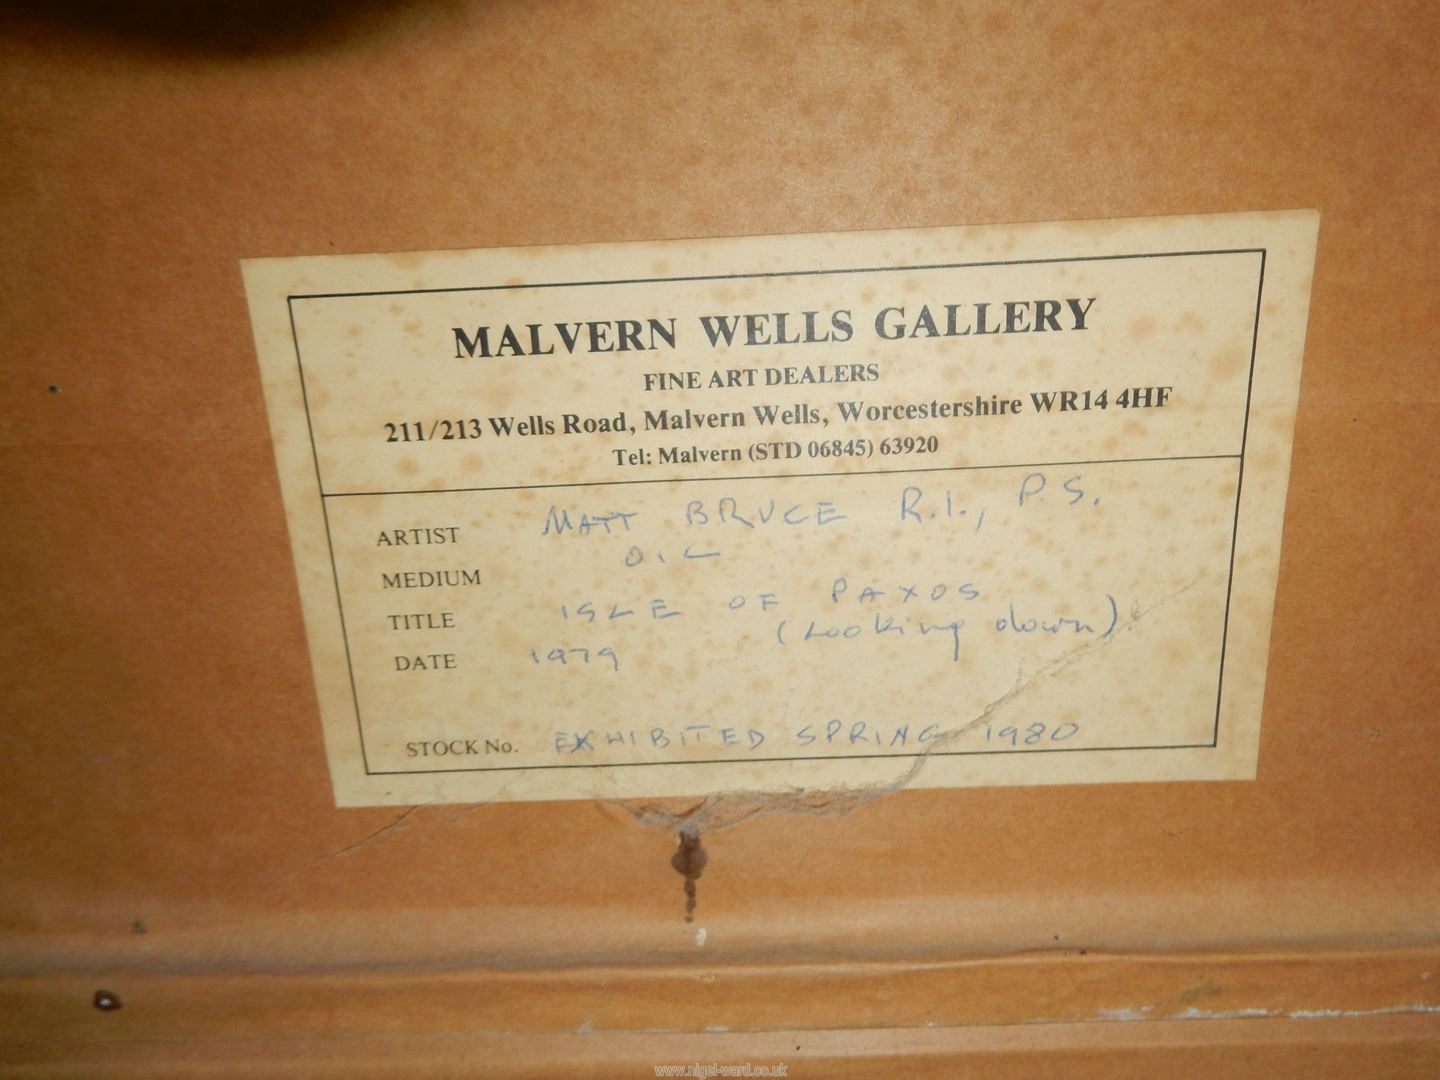 MALVERN WELLS GALLERY
FINE ART DEALERS
211/213 Wells Road, Malvern Wells, Worcestershire WR14 4HF
Tel: Malvern (STD 06845) 63920
ARTIST MATT BRUCE R.I., P.S.
MEDIUM OIL
TITLE ISLE OF PAXOS
(Looking down)
DATE 1979
STOCK No. EXHIBITED SPRING 1980
www.nigel-ward.co.uk